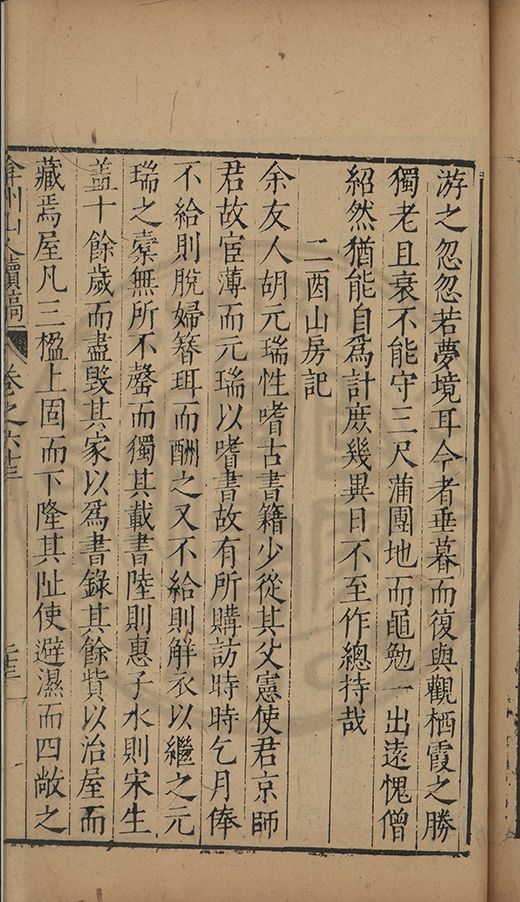 游之忽忽若夢境耳今者垂暮而復與觀栖霞之勝
獨老且衰不能守三尺蒲團地而黽勉一出遠愧僧
紹然猶能自爲計庶幾異日不至作總持哉
二酉山房記
余友人胡元瑞性嗜古書籍少從其父憲使君京師
君故宦薄而元瑞以嗜書故有所購訪時時乞月俸
不給則脫婦簪珥而酬之又不給則解衣以繼之元
瑞之橐無所不罄而獨其載書陸則惠子水則宋生
蓋十餘歲而盡毀其家以爲書錄其餘貲以治屋而
藏焉屋凡三楹上固而下隆其阯使避濕而四敞之
弇州山人續稿 卷之六十三